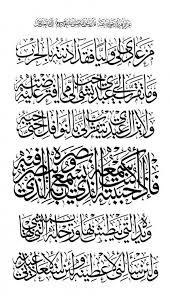 من عادى لي وليا فقد آذنته بالحرب
وما تقرب إلي عبدي بشيء أحب إلي مما افترضته عليه
ولا يزال عبدي يتقرب إلي بالنوافل حتى أحبه
فإذا أحببته كنت سمعه الذي يسمع به وبصره الذي يبصر به
ويده التي يبطش بها ورجله التي يمشي بها
وإن سألني لأعطينه ولئن استعاذني لأعيذنه